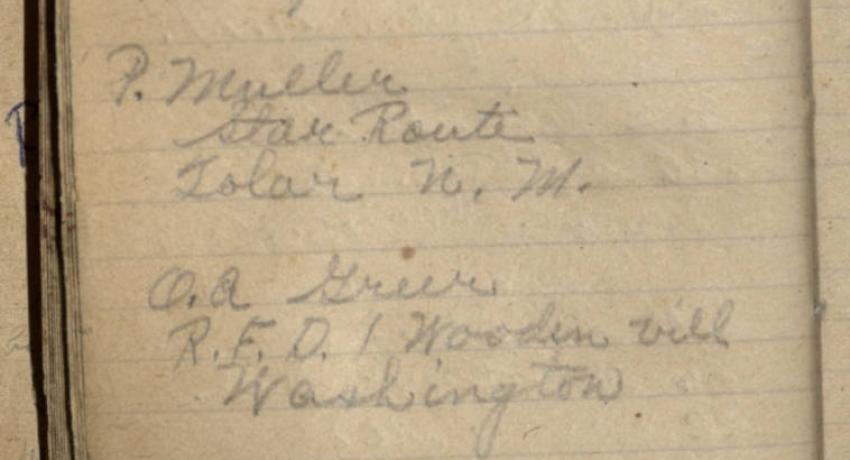 P. Muller
Star Route
Tolar N. M.
O.a Greer
R.F.D. 1 Wooden vill
Washington